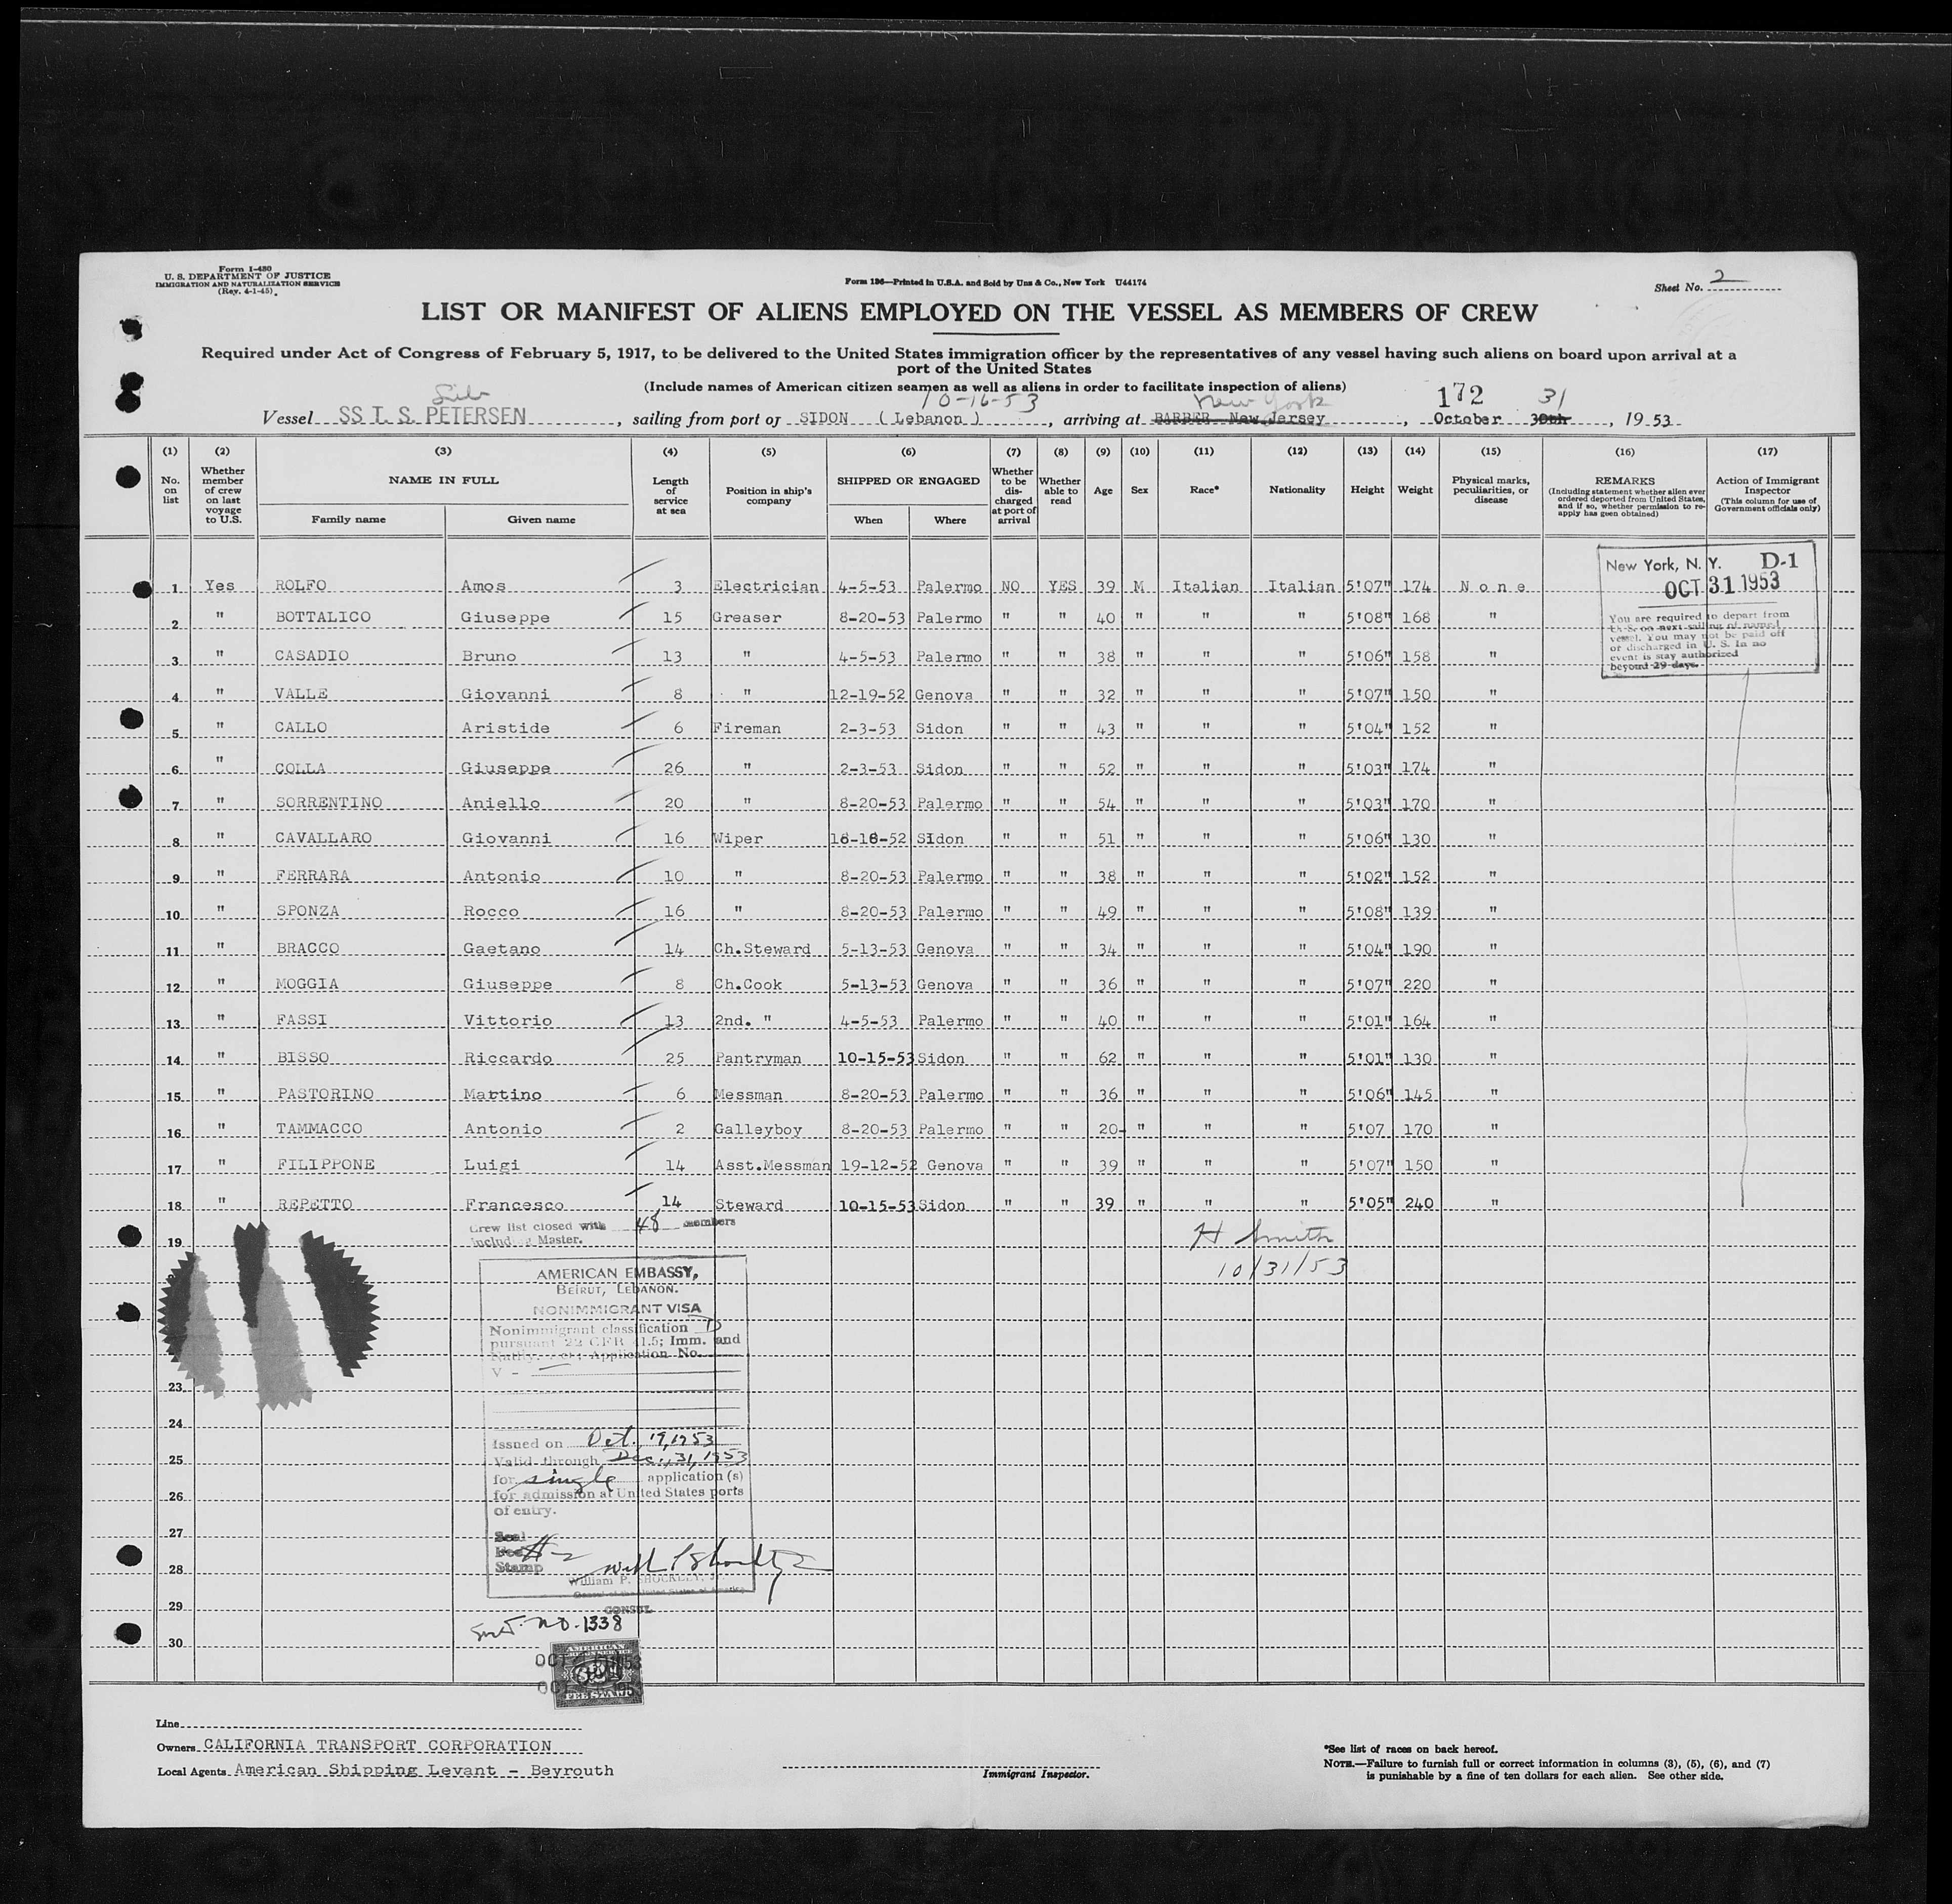 Form I-480
U. S. DEPARTMENT OF JUSTICE
IMMIGRATION AND NATURALIZATION SERVICE
(Rev. 4-1-45)
Form 196—Printed in U.S.A. and Sold by Unz & Co., New York U44174
Sheet No. 2
LIST OR MANIFEST OF ALIENS EMPLOYED ON THE VESSEL AS MEMBERS OF CREW
Required under Act of Congress of February 5, 1917, to be delivered to the United States immigration officer by the representatives of any vessel having such aliens on board upon arrival at a
port of the United States
(Include names of American citizen seamen as well as aliens in order to facilitate inspection of aliens)
10-16-53 New York 172 31
Vessel SS T. S. PETERSEN, sailing from port of SIDON ( Lebanon ), arriving at BARBER New Jersey, October 30th, 1953
(1) (2) (3) (4) (5) (6) (7) (8) (9) (10) (11) (12) (13) (14) (15) (16) (17)
No. on list
Whether member of crew on last voyage to U.S.
NAME IN FULL
Family name
Given name
Length of service at sea
Position in ship's company
SHIPPED OR ENGAGED
When
Where
Whether to be discharged at port of arrival
Whether able to read
Age
Sex
Race*
Nationality
Height
Weight
Physical marks, peculiarities, or disease
REMARKS
(Including statement whether alien ever ordered deported from United States, and if so, whether permission to reapply has been obtained)
Action of Immigrant Inspector
(This column for use of Government officials only)
1 Yes ROLFO Amos 3 Electrician 4-5-53 Palermo NO YES 39 M Italian Italian 5'07" 174 None
2 " BOTTALICO Giuseppe 15 Greaser 8-20-53 Palermo " " 40 " " " 5'08" 168 "
3 " CASADIO Bruno 13 " 4-5-53 Palermo " " 38 " " " 5'06" 158 "
4 " VALLE Giovanni 8 " 12-19-52 Genova " " 32 " " " 5'07" 150 "
5 " CALLO Aristide 6 Fireman 2-3-53 Sidon " " 43 " " " 5'04" 152 "
6 " COLLA Giuseppe 26 " 2-3-53 Sidon " " 52 " " " 5'03" 174 "
7 " SORRENTINO Aniello 20 " 8-20-53 Palermo " " 54 " " " 5'03" 170 "
8 " CAVALLARO Giovanni 16 Wiper Sidon " " 51 " " " 5'06" 130 "
9 " FERRARA Antonio 10 " 8-20-53 Palermo " " 38 " " " 5'02" 152 "
10 " SPONZA Rocco 16 " 8-20-53 Palermo " " 49 " " " 5'08" 139 "
11 " BRACCO Gaetano 14 Ch.Steward 5-13-53 Genova " " 34 " " " 5'04" 190 "
12 " MOGGIA Giuseppe 8 Ch.Cook 5-13-53 Genova " " 36 " " " 5'07" 220 "
13 " FASSI Vittorio 13 2nd. " 4-5-53 Palermo " " 40 " " " 5'01" 164 "
14 " BISSO Riccardo 25 Pantryman 10-15-53 Sidon " " 62 " " " 5'01" 130 "
15 " PASTORINO Mattino 6 Messman 8-20-53 Palermo " " 36 " " " 5'06" 145 "
16 " TAMMACCO Antonio 2 Galleyboy 8-20-53 Palermo " " 20 " " " 5'07 170 "
17 " FILIPPONE Luigi 14 Asst.Messman 19-12-52 Genova " " 39 " " " 5'07" 150 "
18 " REPETTO Francesco 14 Steward 10-15-53 Sidon " " 39 " " " 5'05" 240 "
New York, N. Y. D-1
OCT 31 1953
You are required to depart from
U. S. on next sailing of named
vessel. You may not be paid off
or discharged in U. S. In no
event is stay authorized
beyond 29 days.
Crew list closed with 48 members
Including Master.
H Smith
10/31/53
19
23
24
25
26
27
28
29
30
AMERICAN EMBASSY,
BEIRUT, LEBANON.
NONIMMIGRANT VISA
Nonimmigrant classification D
pursuant 22 CFR 41.5; Imm. and
Natlty. Act; Application No.
V -
Issued on Oct. 19, 1953
Valid through Dec. 31, 1953
for single application (s)
for admission at United States ports
of entry.
Seal
Fee
Stamp
William P. SHOCKLEY, Jr.
Consul of the United States of America
CONSUL
No. 1338
AMERICAN
FEE STAMP
Line
Owners CALIFORNIA TRANSPORT CORPORATION
Local Agents American Shipping Levant - Beyrouth
Immigrant Inspector.
*See list of races on back hereof.
NOTE.—Failure to furnish full or correct information in columns (3), (5), (6), and (7)
is punishable by a fine of ten dollars for each alien. See other side.